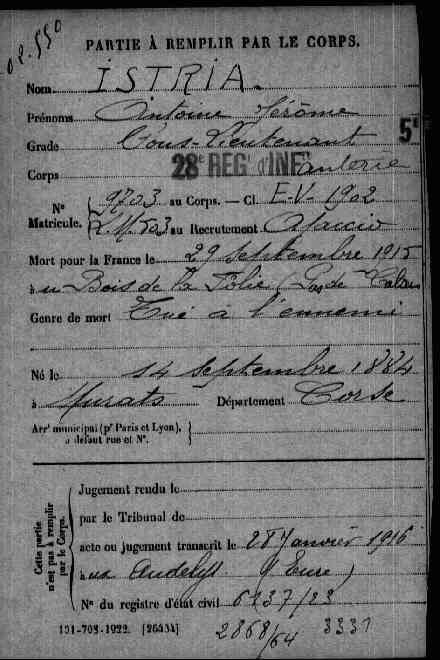 02.550
PARTIE À REMPLIR PAR LE CORPS.
Nom ISTRIA.
Prénoms Antoine Jérôme
Grade Sous-Lieutenant 5e
Corps 28e REGt d'INFanterie
N° Matricule. { 9703 au Corps. — Cl. E.V. 1902
503 au Recrutement Ajaccio
Mort pour la France le 29 septembre 1915
à au Bois de la Folie (Pas de Calais
Genre de mort Tué à l'ennemi
Né le 14 septembre 1884
à Murato Département Corse
Arrt municipal (pr Paris et Lyon), à défaut rue et N°. }
Cette partie n'est pas à remplir par le Corps. {
Jugement rendu le
par le Tribunal de
acte ou jugement transcrit le 28 Janvier 1916
à aux Andelys (Eure)
N° du registre d'état civil 6137/23
101-708-1922. [26434] 2868/64 3331